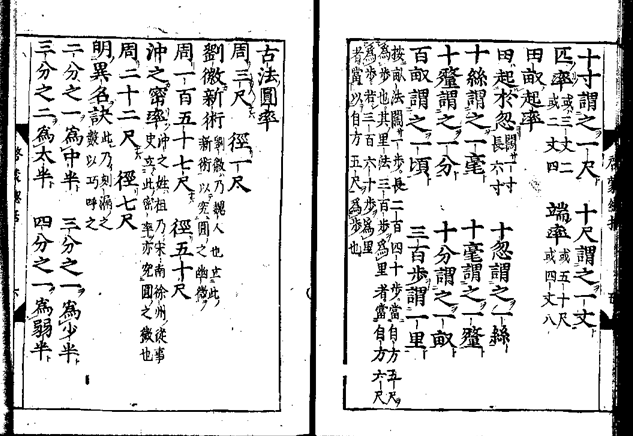 十寸謂之一尺　十尺謂之一丈
匹率 或三丈二 或二丈四　端率 或五十尺 或四丈八
田畝起率
田起於忽 闊一寸 長六寸　十忽謂之一絲
十絲謂之一毫　十毫謂之一釐
十釐謂之一分　十分謂之一畝
百畝謂之一頃　三百步謂一里
按畝法闊一步長二百四十步當自方五尺
爲步也其里法三百步爲里者當自方六尺
爲步若三百六十步爲里
者當以自方五尺爲步也
古法圓率
周三尺　徑一尺
劉徽新術 劉徽乃魏人也立此 新術以究圓之幽微
周一百五十七尺　徑五十尺
沖之密率 沖之姓祖乃宋南徐州從事 史立此密率亦究圓之微也
周二十二尺　徑七尺
明異名訣 此乃刻漏之 數以巧呼之
二分之一爲中半　三分之一爲少半
三分之二爲太半　四分之一爲弱半